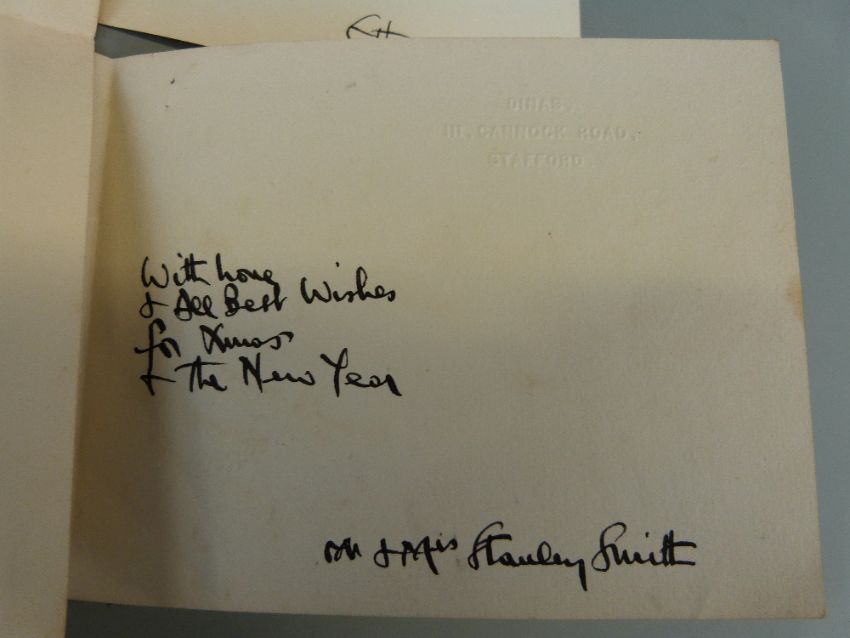 DINAS,
111, CANNOCK ROAD,
STAFFORD
With Love
& All Best Wishes
for Xmas
& the New Year
Mr & Mrs Stanley Smith